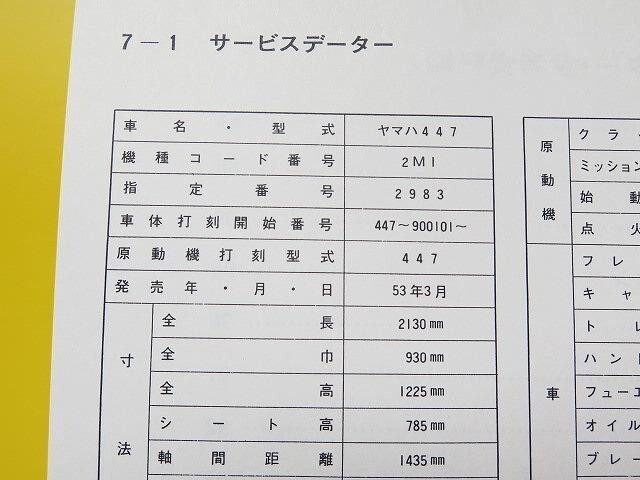 7－1　サービスデーター
車名・型式　ヤマハ447
機種コード番号　2M1
指定番号　2983
車体打刻開始番号　447～900101～
原動機打刻型式　447
発売年・月・日　53年3月
寸法
全長　2130mm
全巾　930mm
全高　1225mm
シート高　785mm
軸間距離　1435mm
原動機
クラ
ミッション
始動
点火
車
フレ
キャ
トレ
ハンド
フューエ
オイル
ブレー